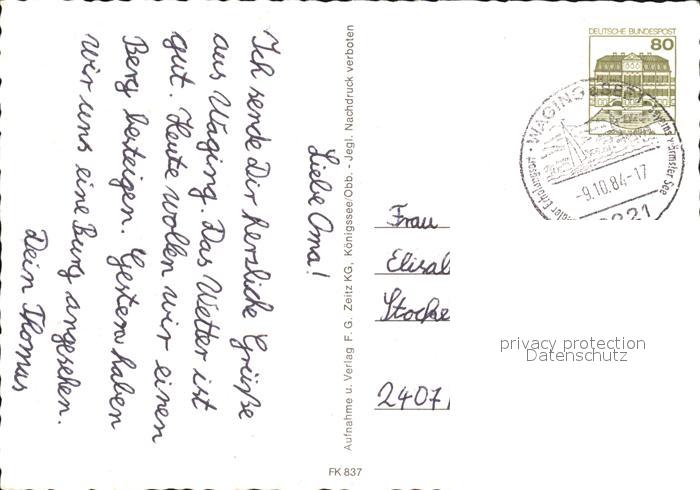 Liebe Oma!
Ich sende Dir herzliche Grüße
aus Waging. Das Wetter ist
gut. Heute wollen wir einen
Berg besteigen. Gestern haben
wir uns eine Burg angesehen.
Dein Thomas
Aufnahme u. Verlag F. G. Zeitz KG, Königssee/Obb. - Jegl. Nachdruck verboten
FK 837
DEUTSCHE BUNDESPOST
80
WAGING a SEE 1
-9.10.84-17
8221
Frau
Elisab
Stocke
2407
privacy protection
Datenschutz